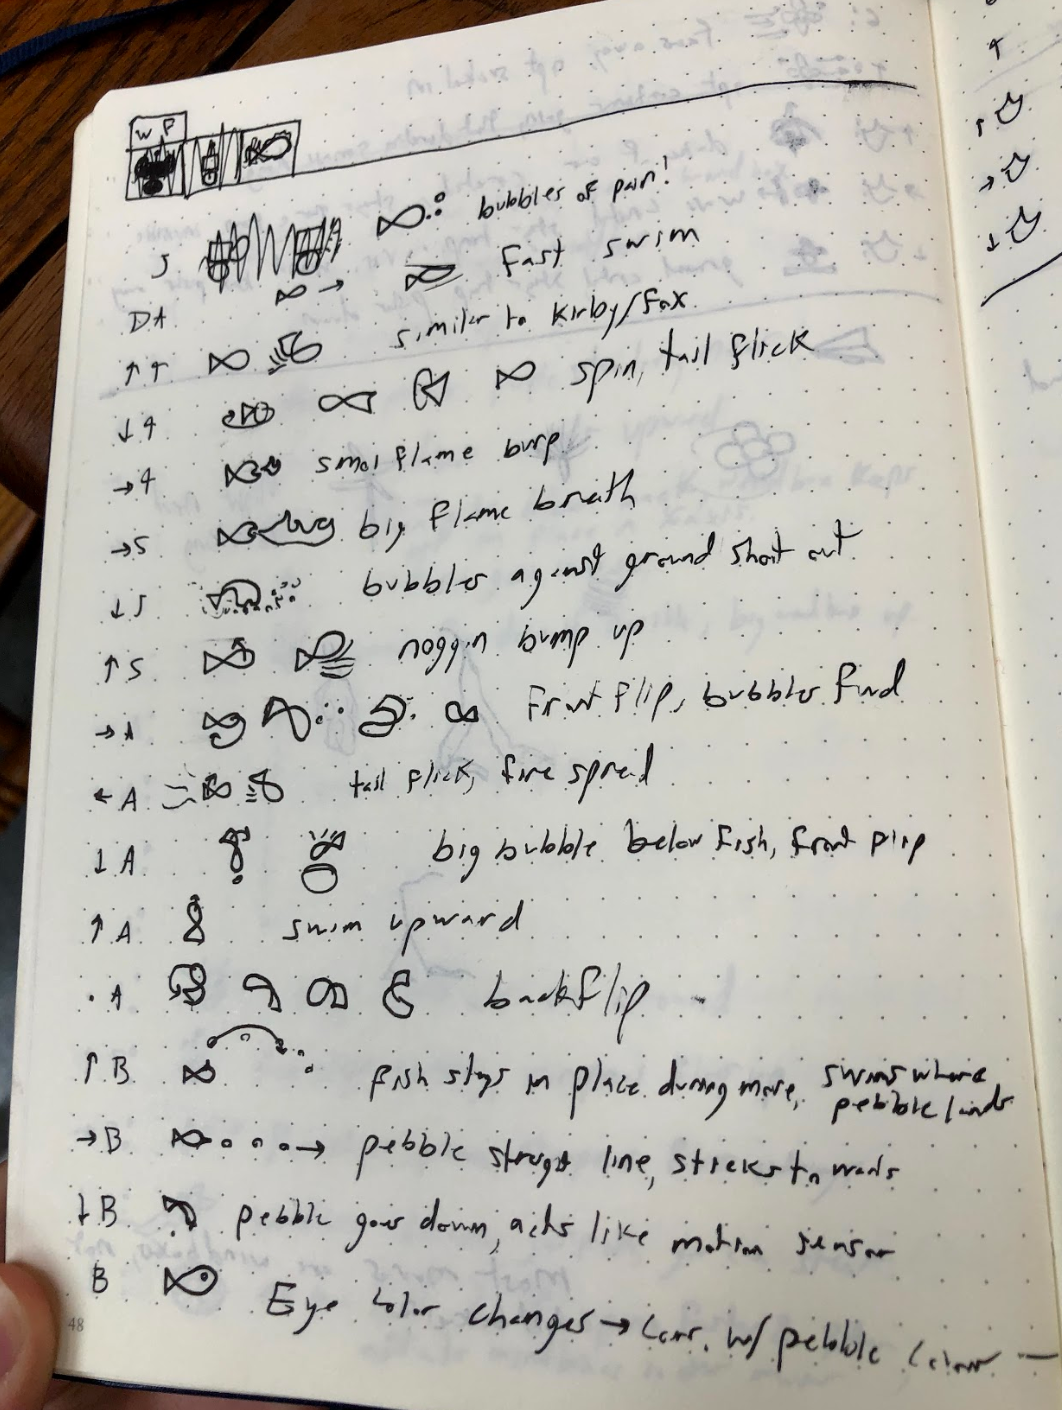 W F
J bubbles of pain!
DA fast swim
↑↑ similar to Kirby/Fox
↓4 spin, tail flick
→4 smol flame burp
→S big flame breath
↓S bubbles against ground shoot out
↑S noggin bump up
→A Front flip, bubbles
←A tail flick, fire spread
↓A big bubble below fish, front
↑A swim upward
• A backflip
↑B fish stays in place during move, swims where
pebble lands
→B pebble straight line, sticks to walls
↓B pebble goes down, acts like motion sensor
B Eye color changes → corr. w/ pebble color —
48